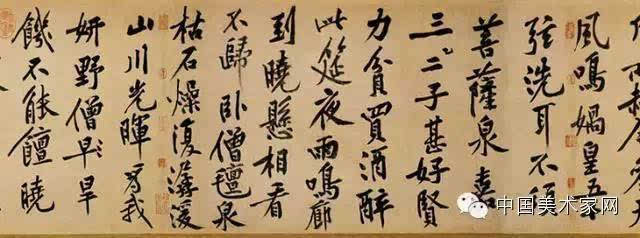 風鳴媧皇五
弦洗耳不
菩薩泉嘉
三二子甚好賢
力貧買酒醉
此筵夜雨鳴廊
到曉懸相看
不歸臥僧氊泉
枯石燥復潺湲
山川光暉為我
妍野僧早旱
饑不能饘曉
中国美术家网